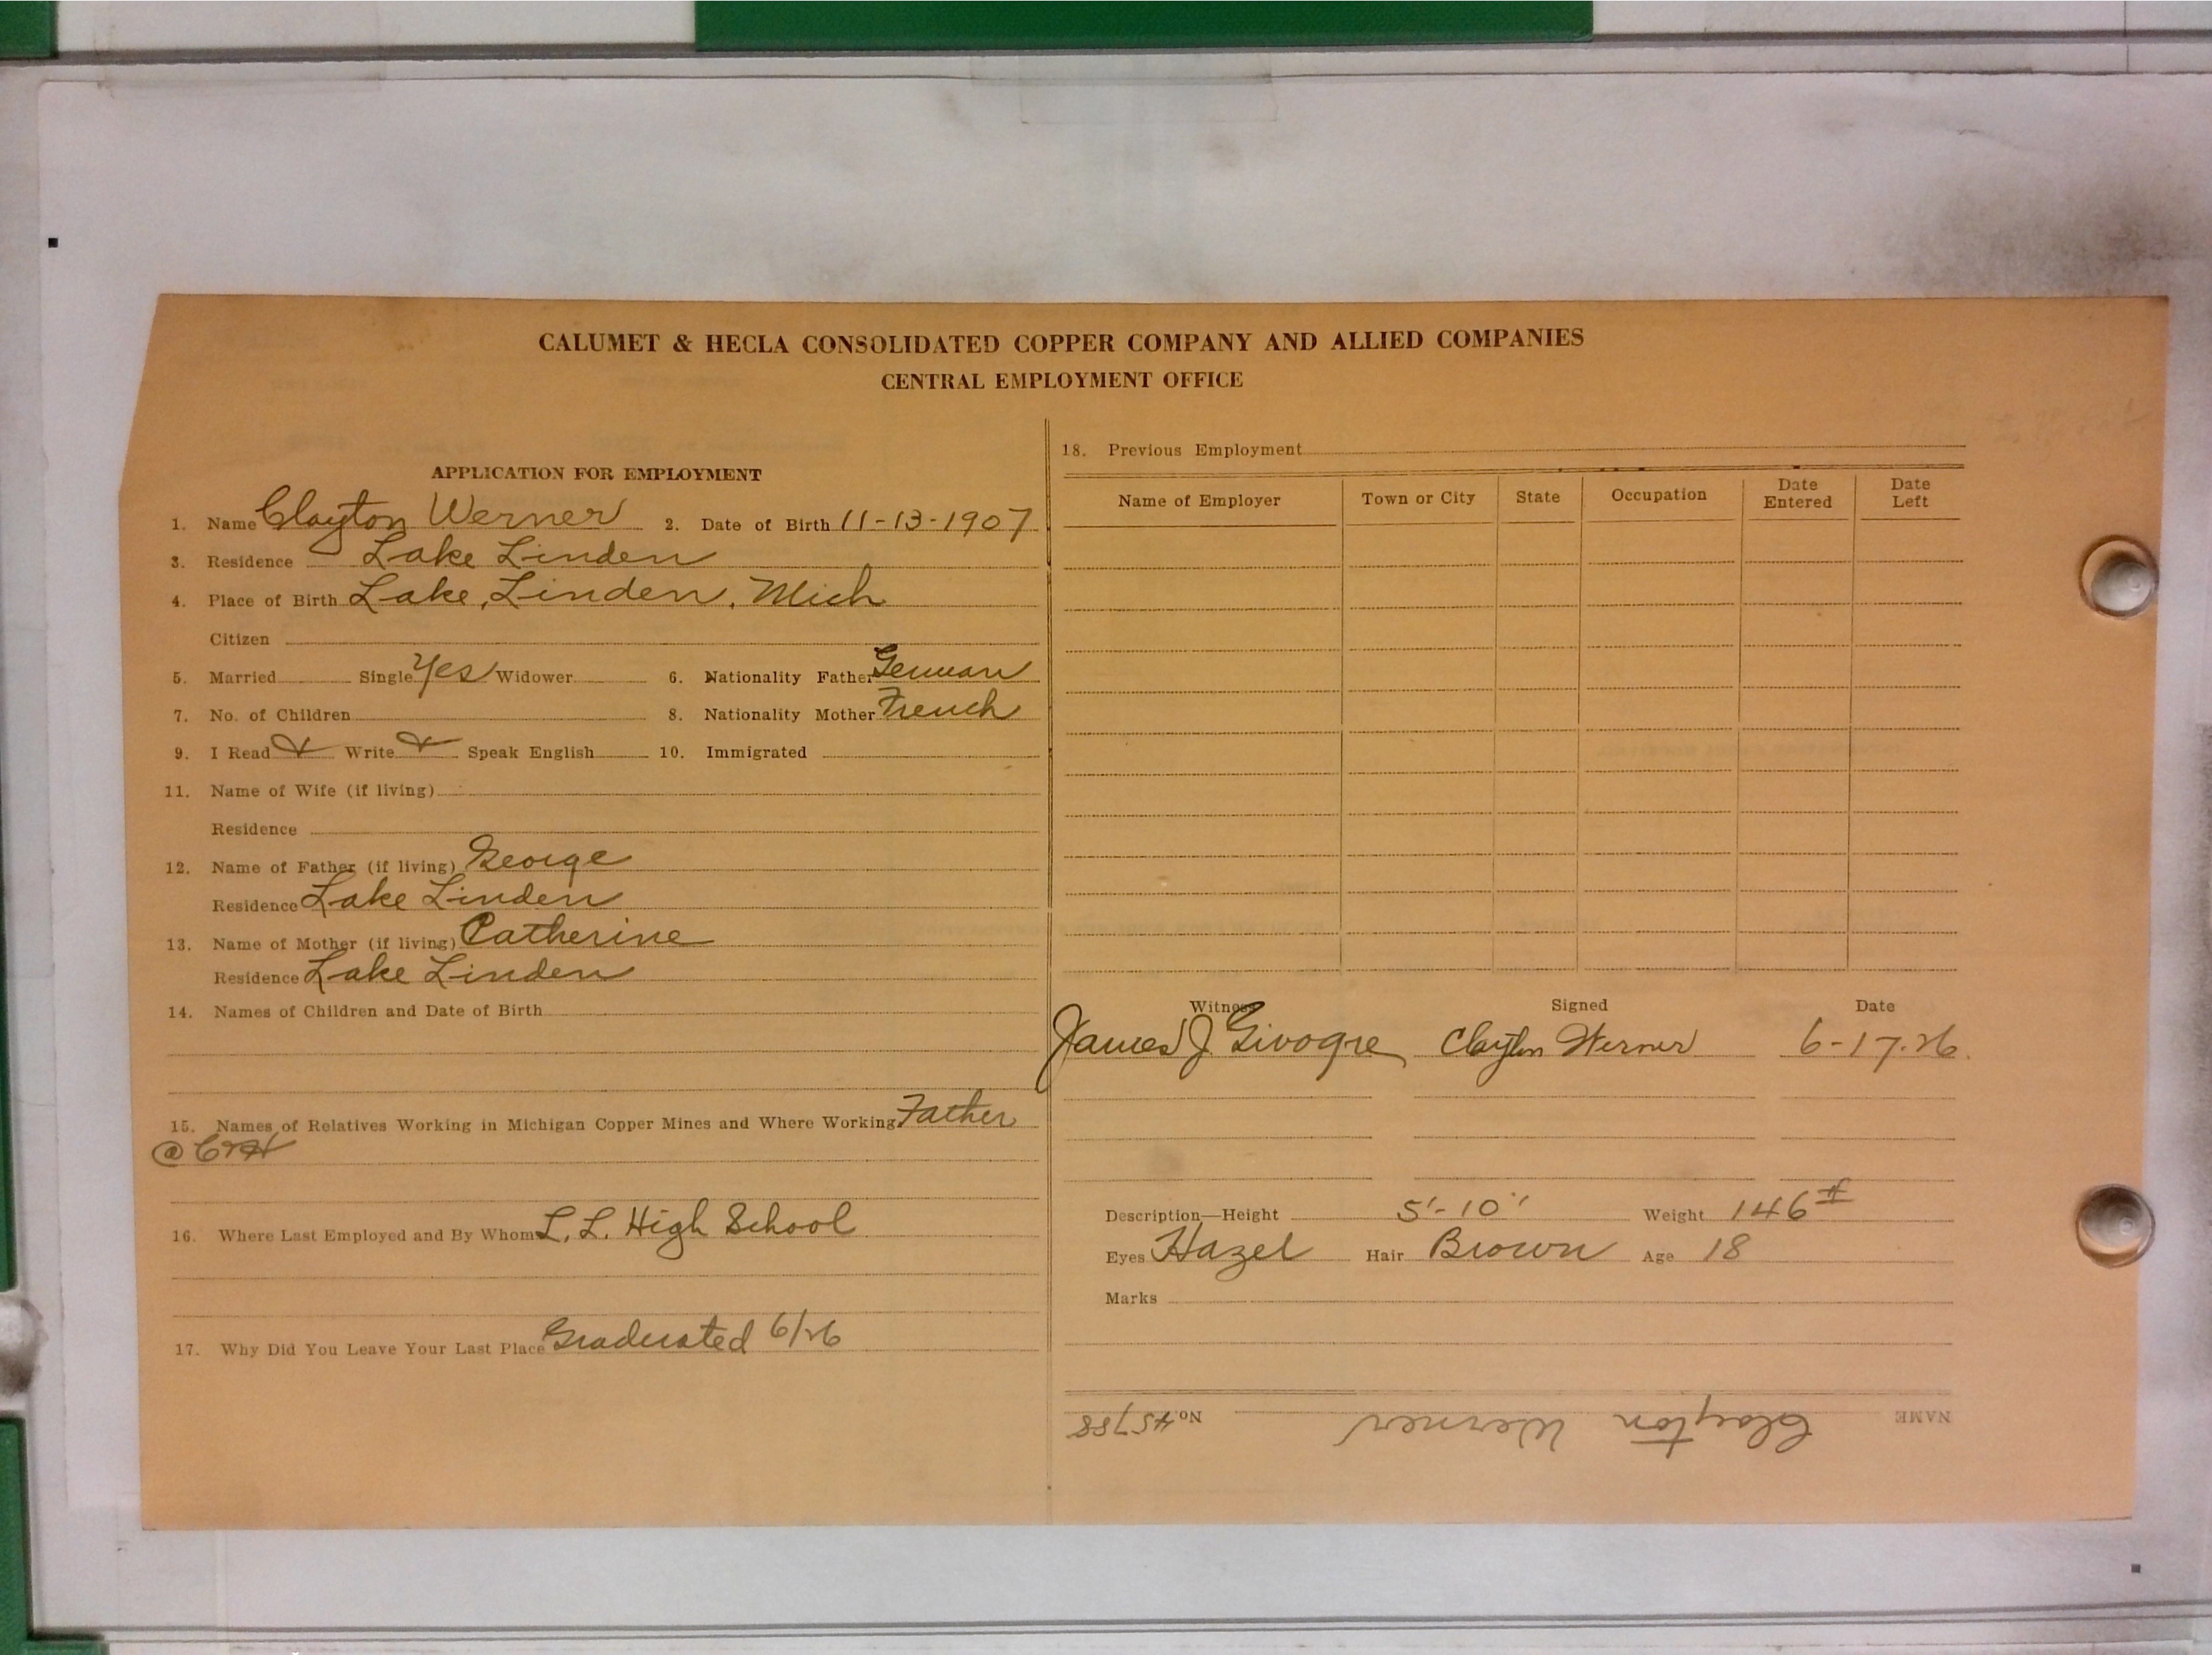 CALUMET & HECLA CONSOLIDATED COPPER COMPANY AND ALLIED COMPANIES
CENTRAL EMPLOYMENT OFFICE
APPLICATION FOR EMPLOYMENT
1. Name Clayton Werner 2. Date of Birth 11-13-1907
3. Residence Lake Linden
4. Place of Birth Lake, Linden, Mich
Citizen
5. Married Single Yes Widower 6. Nationality Father German
7. No. of Children 8. Nationality Mother French
9. I Read Write Speak English 10. Immigrated
11. Name of Wife (if living)
Residence
12. Name of Father (if living) George
Residence Lake Linden
13. Name of Mother (if living) Catherine
Residence Lake Linden
14. Names of Children and Date of Birth
15. Names of Relatives Working in Michigan Copper Mines and Where Working Father
@ C&H
16. Where Last Employed and By Whom L. L. High School
17. Why Did You Leave Your Last Place Graduated 6/26
18. Previous Employment
Name of Employer Town or City State Occupation Date Entered Date Left
Witness Signed Date
James J. Clayton Werner 6-17-26.
Description—Height 5'-10" Weight 146#
Eyes Hazel Hair Brown Age 18
Marks
NAME Clayton Werner No. 45788